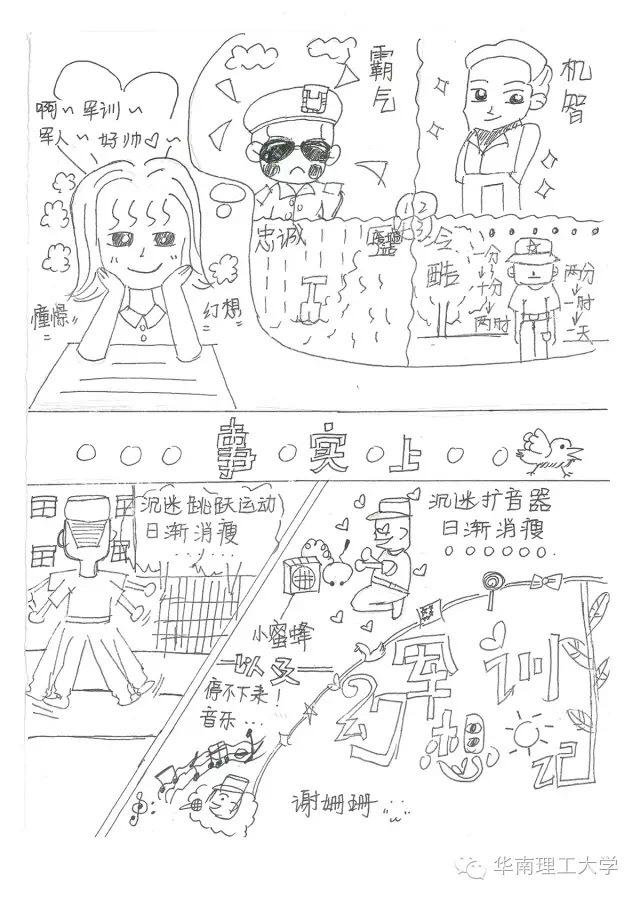 啊~军训~
军人~好帅♡~
憧憬
幻想
霸气
机智
忠诚
冷酷
一分
十分
两时
两分
一时
一天
○○○○事○实○上○○○
沉迷跳跃运动
日渐消瘦
......
沉迷扩音器
日渐消瘦
○○○○○○.
小蜜蜂
以及
停不下来!
音乐...
军训
幻想记
谢姗珊
华南理工大学